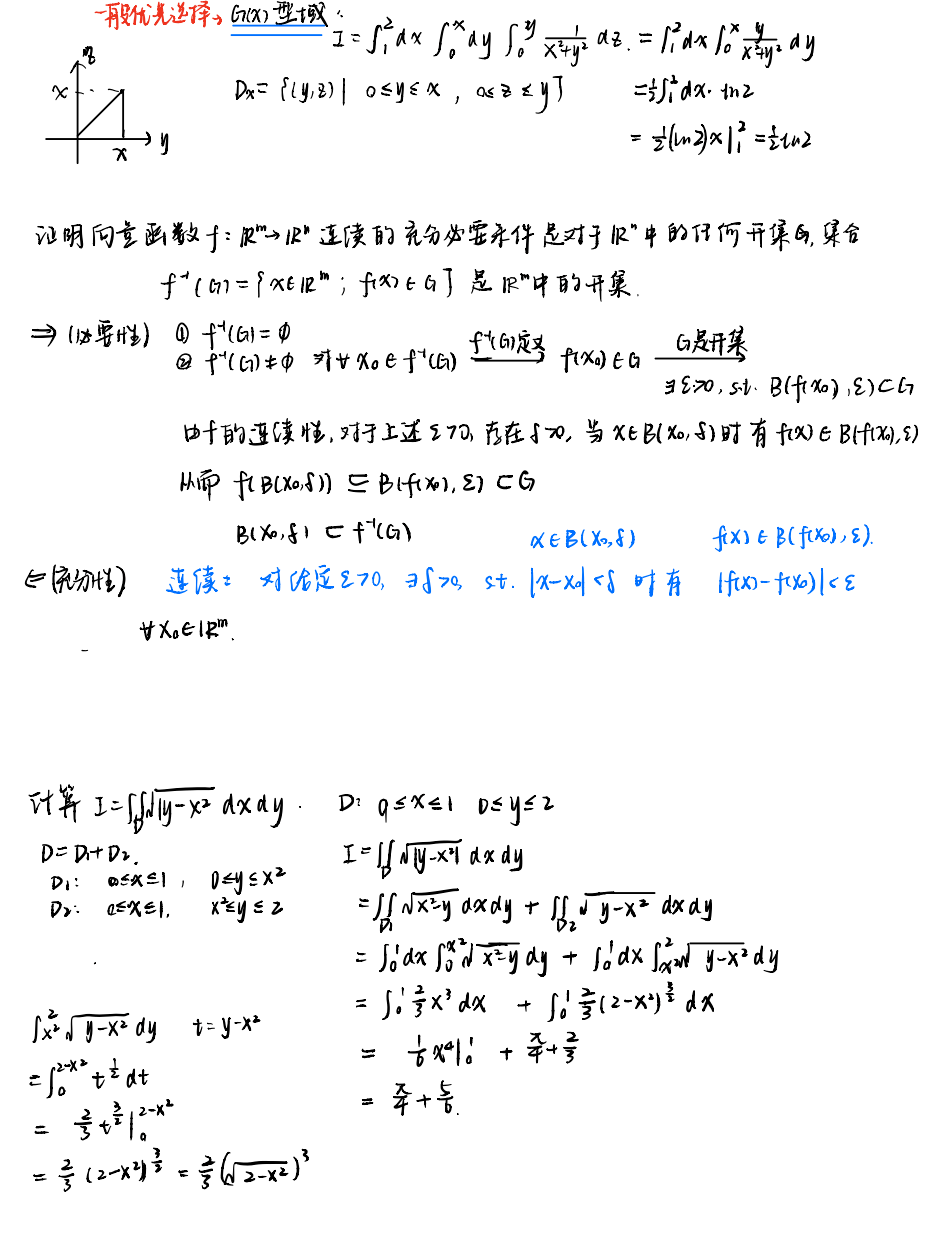 一般优先选择→ G(x) 型域:
I=∫₁²dx ∫₀ˣdy ∫₀ʸ 1/(x²+y²) dz. = ∫₁²dx ∫₀ˣ y/(x²+y²) dy
z
x
x
y
Dx= {(y,z)| 0≤y≤x , 0≤z≤y}
=½∫₁²dx·ln2
= ½(ln2)x|₁² =½ln2
证明向量函数 f: ℝᵐ→ℝⁿ 连续的充分必要条件是对于ℝⁿ中的任何开集G, 集合
f⁻¹(G)={x∈ℝᵐ; f(x)∈G} 是ℝᵐ中的开集.
⇒ (必要性) ① f⁻¹(G)=∅
② f⁻¹(G)≠∅ 对∀x₀∈f⁻¹(G) f⁻¹(G)定义 → f(x₀)∈G G是开集 →
∃ε>0, s.t. B(f(x₀),ε)⊂G
由f的连续性, 对于上述ε>0, 存在δ>0, 当x∈B(x₀,δ)时有f(x)∈B(f(x₀),ε)
从而 f(B(x₀,δ)) ⊆ B(f(x₀),ε) ⊂G
B(x₀,δ) ⊂ f⁻¹(G)
x∈B(x₀,δ) f(x)∈B(f(x₀),ε).
⇐(充分性) 连续: 对给定ε>0, ∃δ>0, s.t. |x-x₀|<δ 时有 |f(x)-f(x₀)|<ε
∀x₀∈ℝᵐ.
计算 I=∬_D √|y-x² dxdy. D: 0≤x≤1 0≤y≤2
D=D₁+D₂.
D₁: 0≤x≤1, 0≤y≤x²
D₂: 0≤x≤1, x²≤y≤2
I=∬_D √|y-x²| dxdy
=∬_D₁ √x²-y dxdy + ∬_D₂ √y-x² dxdy
= ∫₀¹dx∫₀^(x²) √x²-y dy + ∫₀¹dx∫_(x²)^2 √y-x² dy
= ∫₀¹ ⅔x³dx + ∫₀¹ ⅔(2-x²)^(3/2) dx
= ⅙x⁴|₀¹ + π/4+⅔
= π/4+⅚.
∫_(x²)^2 √y-x² dy t=y-x²
=∫₀^(2-x²) t^(1/2) dt
= ⅔t^(3/2)|₀^(2-x²)
= ⅔(2-x²)^(3/2) = ⅔(√2-x²)³